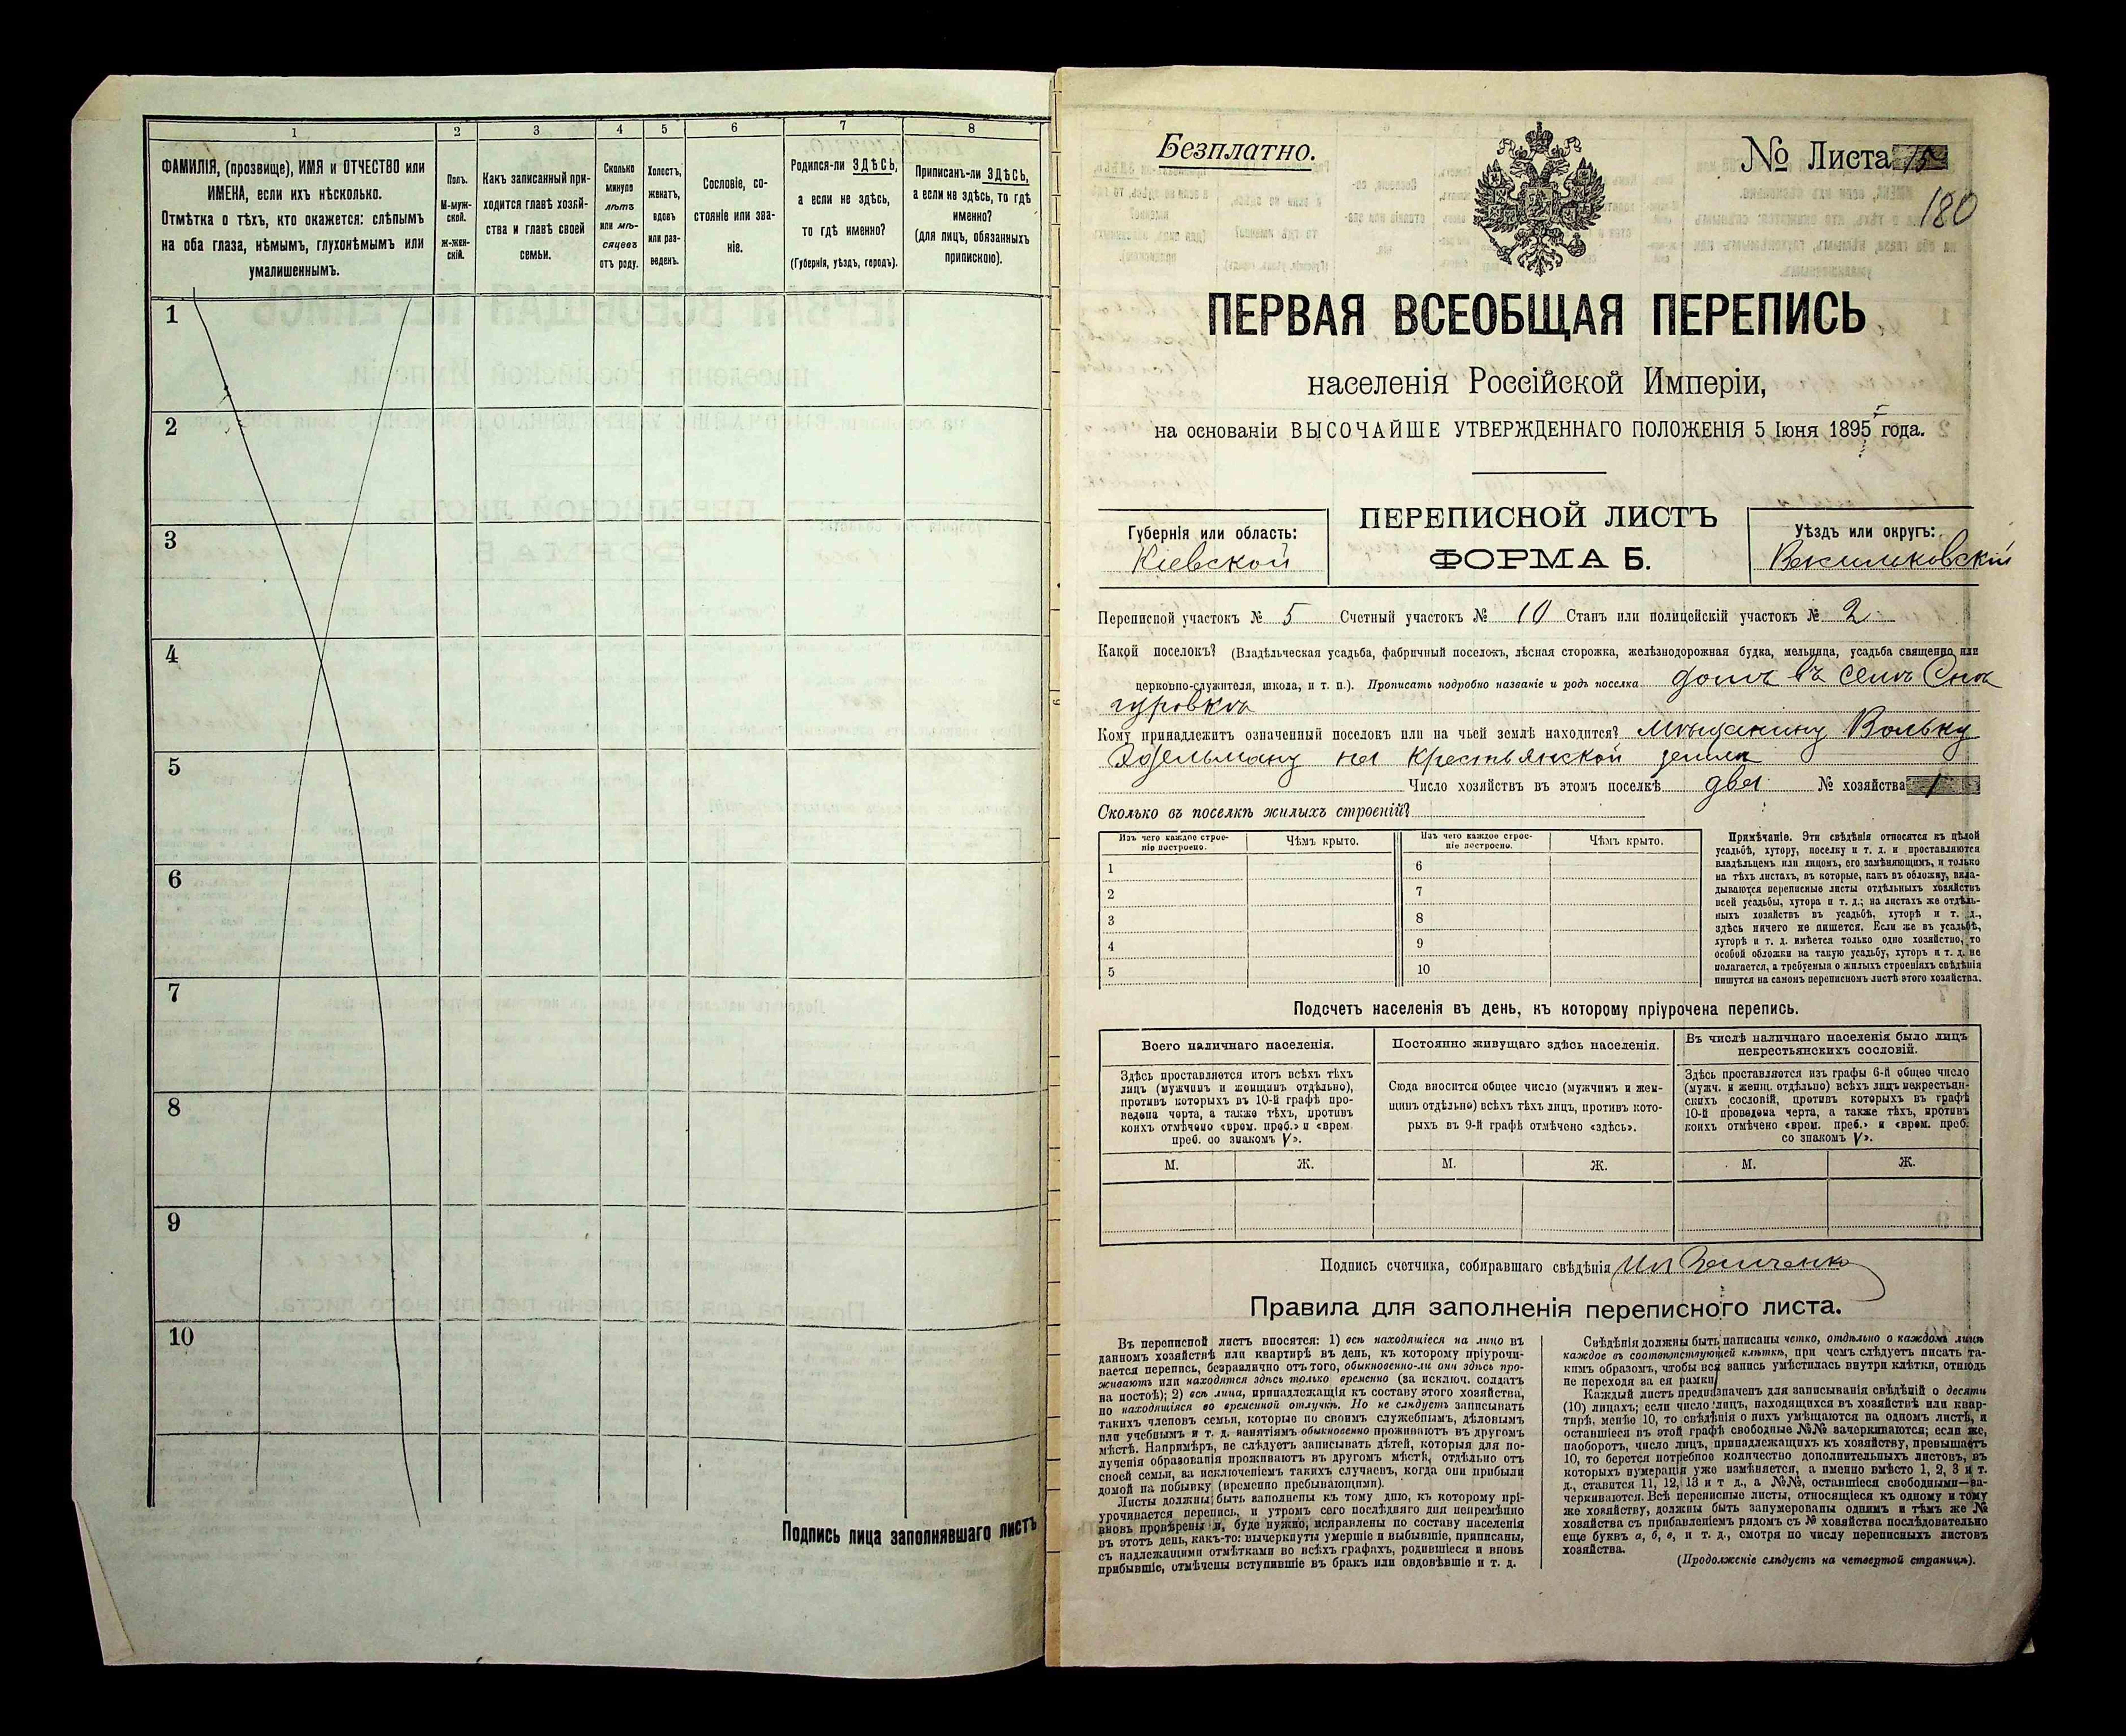 1 2 3 4 5 6 7 8
ФАМИЛІЯ, (прозвище), ИМЯ и ОТЧЕСТВО или
ИМЕНА, если ихъ нѣсколько.
Отмѣтка о тѣхъ, кто окажется: слѣпымъ
на оба глаза, нѣмымъ, глухонѣмымъ или
умалишеннымъ.
Полъ.
М-муж-
ской.
Ж-жен-
скій.
Какъ записанный при-
ходится главѣ хозяй-
ства и главѣ своей
семьи.
Сколько
минуло
лѣтъ
или мѣ-
сяцевъ
отъ роду.
Холостъ,
женатъ,
вдовъ
или раз-
веденъ.
Сословіе, со-
стояніе или зва-
ніе.
Родился-ли ЗДѢСЬ,
а если не здѣсь,
то гдѣ именно?
(Губернія, уѣздъ, городъ).
Приписанъ-ли ЗДѢСЬ,
а если не здѣсь, то гдѣ
именно?
(для лицъ, обязанныхъ
припискою).
1
2
3
4
5
6
7
8
9
10
Подпись лица заполнявшаго листъ
Безплатно.
№ Листа 15
180
ПЕРВАЯ ВСЕОБЩАЯ ПЕРЕПИСЬ
населенія Россійской Имперіи,
на основаніи ВЫСОЧАЙШЕ УТВЕРЖДЕННАГО ПОЛОЖЕНІЯ 5 Іюня 1895 года.
Губернія или область:
Кіевской
ПЕРЕПИСНОЙ ЛИСТЪ
ФОРМА Б.
Уѣздъ или округъ:
Васильковскій
Переписной участокъ № 5 Счетный участокъ № 10 Станъ или полицейскій участокъ № 2
Какой поселокъ? (Владѣльческая усадьба, фабричный поселокъ, лѣсная сторожка, желѣзнодорожная будка, мельница, усадьба священно или
церковно-служителя, школа, и т. п.). Прописать подробно названіе и родъ поселка домъ въ селѣ
Кому принадлежитъ означенный поселокъ или на чьей землѣ находится? мѣщанину Вольку
Эдельману на крестьянской землѣ
Число хозяйствъ въ этомъ поселкѣ два № хозяйства 1
Сколько въ поселкѣ жилыхъ строеній?
Изъ чего каждое строе-
ніе построено.
Чѣмъ крыто.
Изъ чего каждое строе-
ніе построено.
Чѣмъ крыто.
1 6
2 7
3 8
4 9
5 10
Примѣчаніе. Эти свѣдѣнія относятся къ цѣлой
усадьбѣ, хутору, поселку и т. д. и проставляются
владѣльцемъ или лицомъ, его замѣняющимъ, и только
на тѣхъ листахъ, въ которые, какъ въ обложку, вкла-
дываются переписные листы отдѣльныхъ хозяйствъ
всей усадьбы, хутора и т. д.; на листахъ же отдѣль-
ныхъ хозяйствъ въ усадьбѣ, хуторѣ и т. д.,
здѣсь ничего не пишется. Если же въ усадьбѣ,
хуторѣ и т. д. имѣется только одно хозяйство, то
особой обложки на такую усадьбу, хуторъ и т. д. не
полагается, а требуемыя о жилыхъ строеніяхъ свѣдѣнія
пишутся на самомъ переписномъ листѣ этого хозяйства.
Подсчетъ населенія въ день, къ которому пріурочена перепись.
Всего наличнаго населенія.
Здѣсь проставляется итогъ всѣхъ тѣхъ
лицъ (мужчинъ и женщинъ отдѣльно),
противъ которыхъ въ 10-й графѣ про-
ведена черта, а также тѣхъ, противъ
коихъ отмѣчено «врем. преб.» и «врем.
преб. со знакомъ V».
Постоянно живущаго здѣсь населенія.
Сюда вносится общее число (мужчинъ и жен-
щинъ отдѣльно) всѣхъ тѣхъ лицъ, противъ кото-
рыхъ въ 9-й графѣ отмѣчено «здѣсь».
Въ числѣ наличнаго населенія было лицъ
некрестьянскихъ сословій.
Здѣсь проставляется изъ графы 6-й общее число
(мужч. и женщ. отдѣльно) всѣхъ лицъ некрестьян-
скихъ сословій, противъ которыхъ въ графѣ
10-й проведена черта, а также тѣхъ, противъ
коихъ отмѣчено «врем. преб.» и «врем. преб.
со знакомъ V».
М. Ж. М. Ж. М. Ж.
Подпись счетчика, собиравшаго свѣдѣнія
Правила для заполненія переписного листа.
Въ переписной листъ вносятся: 1) всѣ находящіеся на лицо въ
данномъ хозяйствѣ или квартирѣ въ день, къ которому пріурочи-
вается перепись, безразлично отъ того, обыкновенно-ли они здѣсь про-
живаютъ или находятся здѣсь только временно (за исключ. солдатъ
на постоѣ); 2) всѣ лица, принадлежащія къ составу этого хозяйства,
но находящіяся во временной отлучкѣ. Но не слѣдуетъ записывать
такихъ членовъ семьи, которые по своимъ служебнымъ, дѣловымъ
или учебнымъ и т. д. занятіямъ обыкновенно проживаютъ въ другомъ
мѣстѣ. Напримѣръ, не слѣдуетъ записывать дѣтей, которыя для по-
лученія образованія проживаютъ въ другомъ мѣстѣ, отдѣльно отъ
своей семьи, за исключеніемъ такихъ случаевъ, когда они прибыли
домой на побывку (временно пребывающими).
Листы должны быть заполнены къ тому дню, къ которому прі-
урочивается перепись, и утромъ сего послѣдняго дня непремѣнно
вновь провѣрены и, буде нужно, исправлены по составу населенія
въ этотъ день, какъ-то: вычеркнуты умершіе и выбывшіе, приписаны,
съ надлежащими отмѣтками во всѣхъ графахъ, родившіеся и вновь
прибывшіе, отмѣчены вступившіе въ бракъ или овдовѣвшіе и т. д.
Свѣдѣнія должны быть написаны четко, отдѣльно о каждомъ лицѣ
каждое въ соотвѣтствующей клѣткѣ, при чемъ слѣдуетъ писать та-
кимъ образомъ, чтобы вся запись умѣстилась внутри клѣтки, отнюдь
не переходя за ея рамки.
Каждый листъ предназначенъ для записыванія свѣдѣній о десяти
(10) лицахъ; если число лицъ, находящихся въ хозяйствѣ или квар-
тирѣ, менѣе 10, то свѣдѣнія о нихъ умѣщаются на одномъ листѣ, и
оставшіеся въ этой графѣ свободные №№ зачеркиваются; если же,
наоборотъ, число лицъ, принадлежащихъ къ хозяйству, превышаетъ
10, то берется потребное количество дополнительныхъ листовъ, въ
которыхъ нумерація уже измѣняется, а именно вмѣсто 1, 2, 3 и т.
д., ставится 11, 12, 13 и т д., а №№, оставшіеся свободными—за-
черкиваются. Всѣ переписные листы, относящіеся къ одному и тому
же хозяйству, должны быть занумерованы однимъ и тѣмъ же №
хозяйства съ прибавленіемъ рядомъ съ № хозяйства послѣдовательно
еще буквъ а, б, в, и т. д., смотря по числу переписныхъ листовъ
хозяйства.
(Продолженіе слѣдуетъ на четвертой страницѣ).